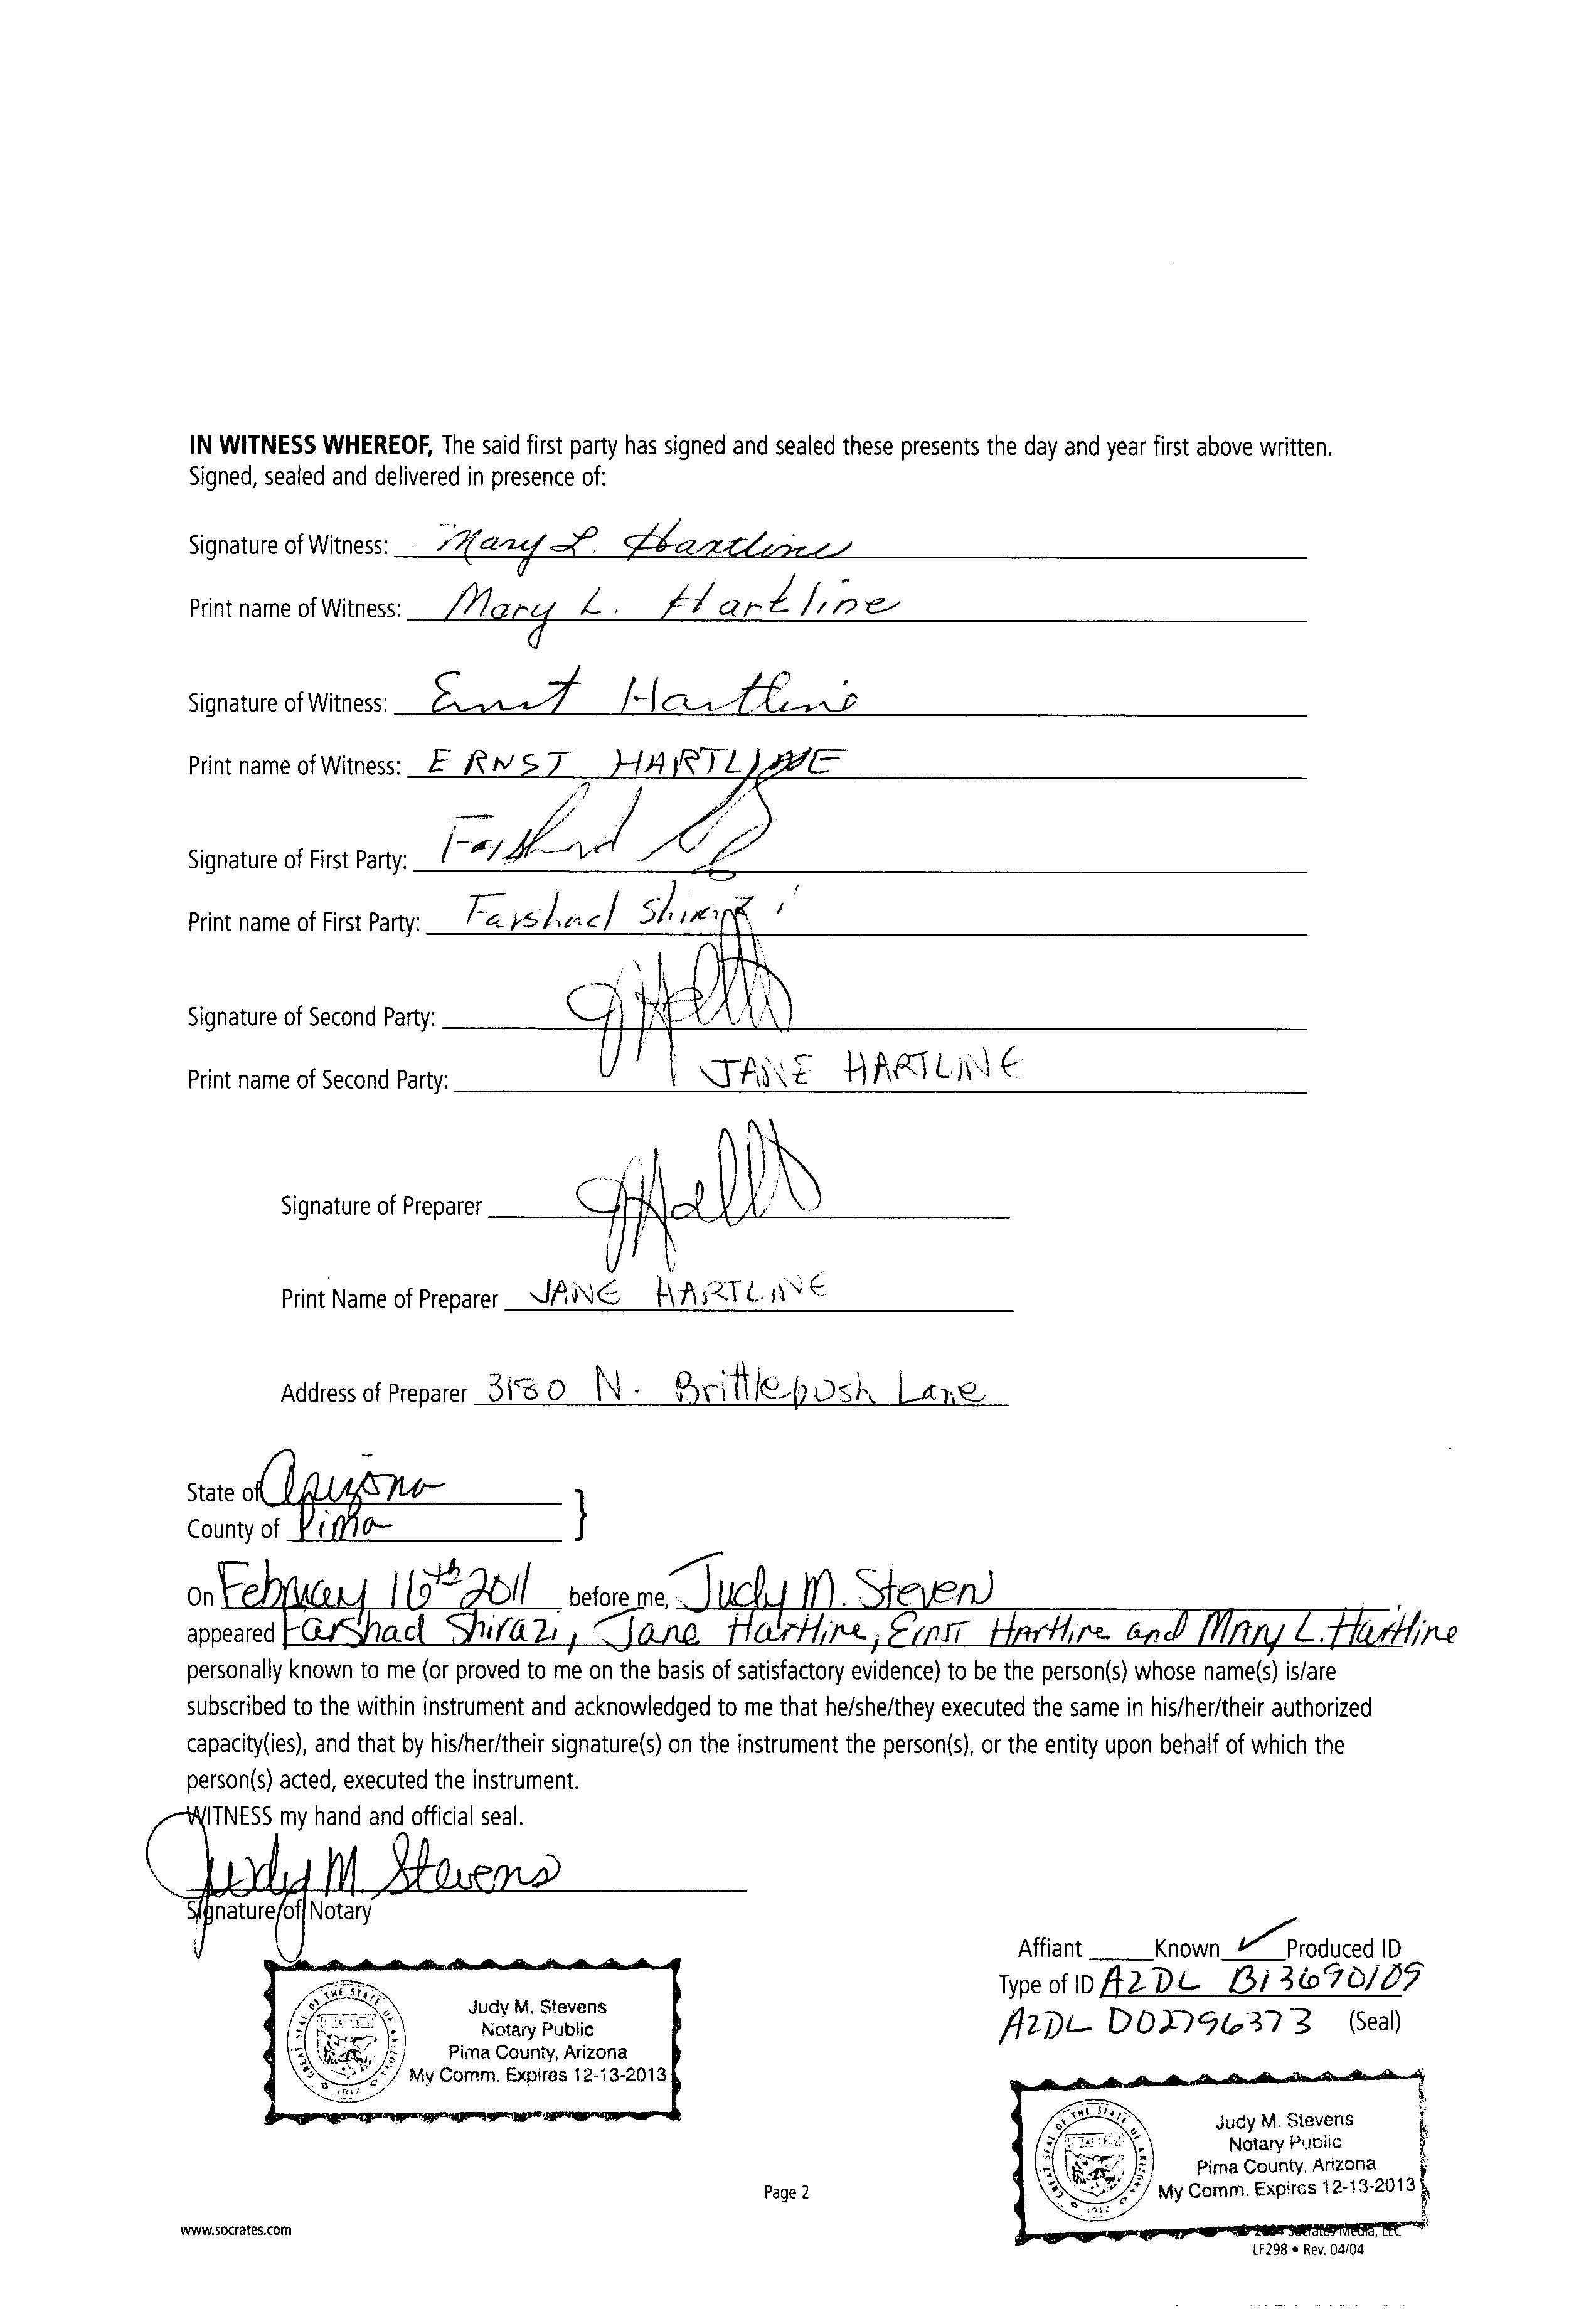 IN WITNESS WHEREOF, The said first party has signed and sealed these presents the day and year first above written.
Signed, sealed and delivered in presence of:
Signature of Witness: Mary L. Hartline
Print name of Witness: Mary L. Hartline
Signature of Witness: Ernst Hartline
Print name of Witness: ERNST HARTLINE
Signature of First Party: Farshad
Print name of First Party: Farshad Shirazi
Signature of Second Party:
Print name of Second Party: JANE HARTLINE
Signature of Preparer
Print Name of Preparer JANE HARTLINE
Address of Preparer 3180 N. Brittlebush Lane
State of Arizona
County of Pima }
On February 16th 2011 before me, Judy M. Stevens,
appeared Farshad Shirazi, Jane Hartline, Ernst Hartline and Mary L. Hartline
personally known to me (or proved to me on the basis of satisfactory evidence) to be the person(s) whose name(s) is/are
subscribed to the within instrument and acknowledged to me that he/she/they executed the same in his/her/their authorized
capacity(ies), and that by his/her/their signature(s) on the instrument the person(s), or the entity upon behalf of which the
person(s) acted, executed the instrument.
WITNESS my hand and official seal.
Judy M. Stevens
Signature of Notary
Affiant Known ✓ Produced ID
Type of ID AZDL B13690109
AZDL D02796373 (Seal)
GREAT SEAL OF THE STATE OF ARIZONA
1912
Judy M. Stevens
Notary Public
Pima County, Arizona
My Comm. Expires 12-13-2013
GREAT SEAL OF THE STATE OF ARIZONA
1912
Judy M. Stevens
Notary Public
Pima County, Arizona
My Comm. Expires 12-13-2013
Page 2
www.socrates.com
© 2004 Socrates Media, LLC
LF298 • Rev. 04/04